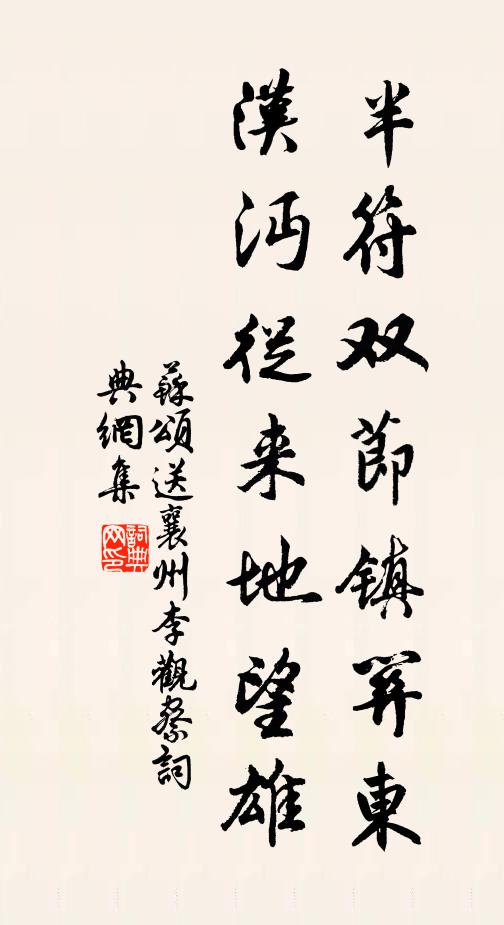 半符双節镇関東
漢沔從来地望雄
蘇頌送襄州李觀察詞
典網集
詞典
网印